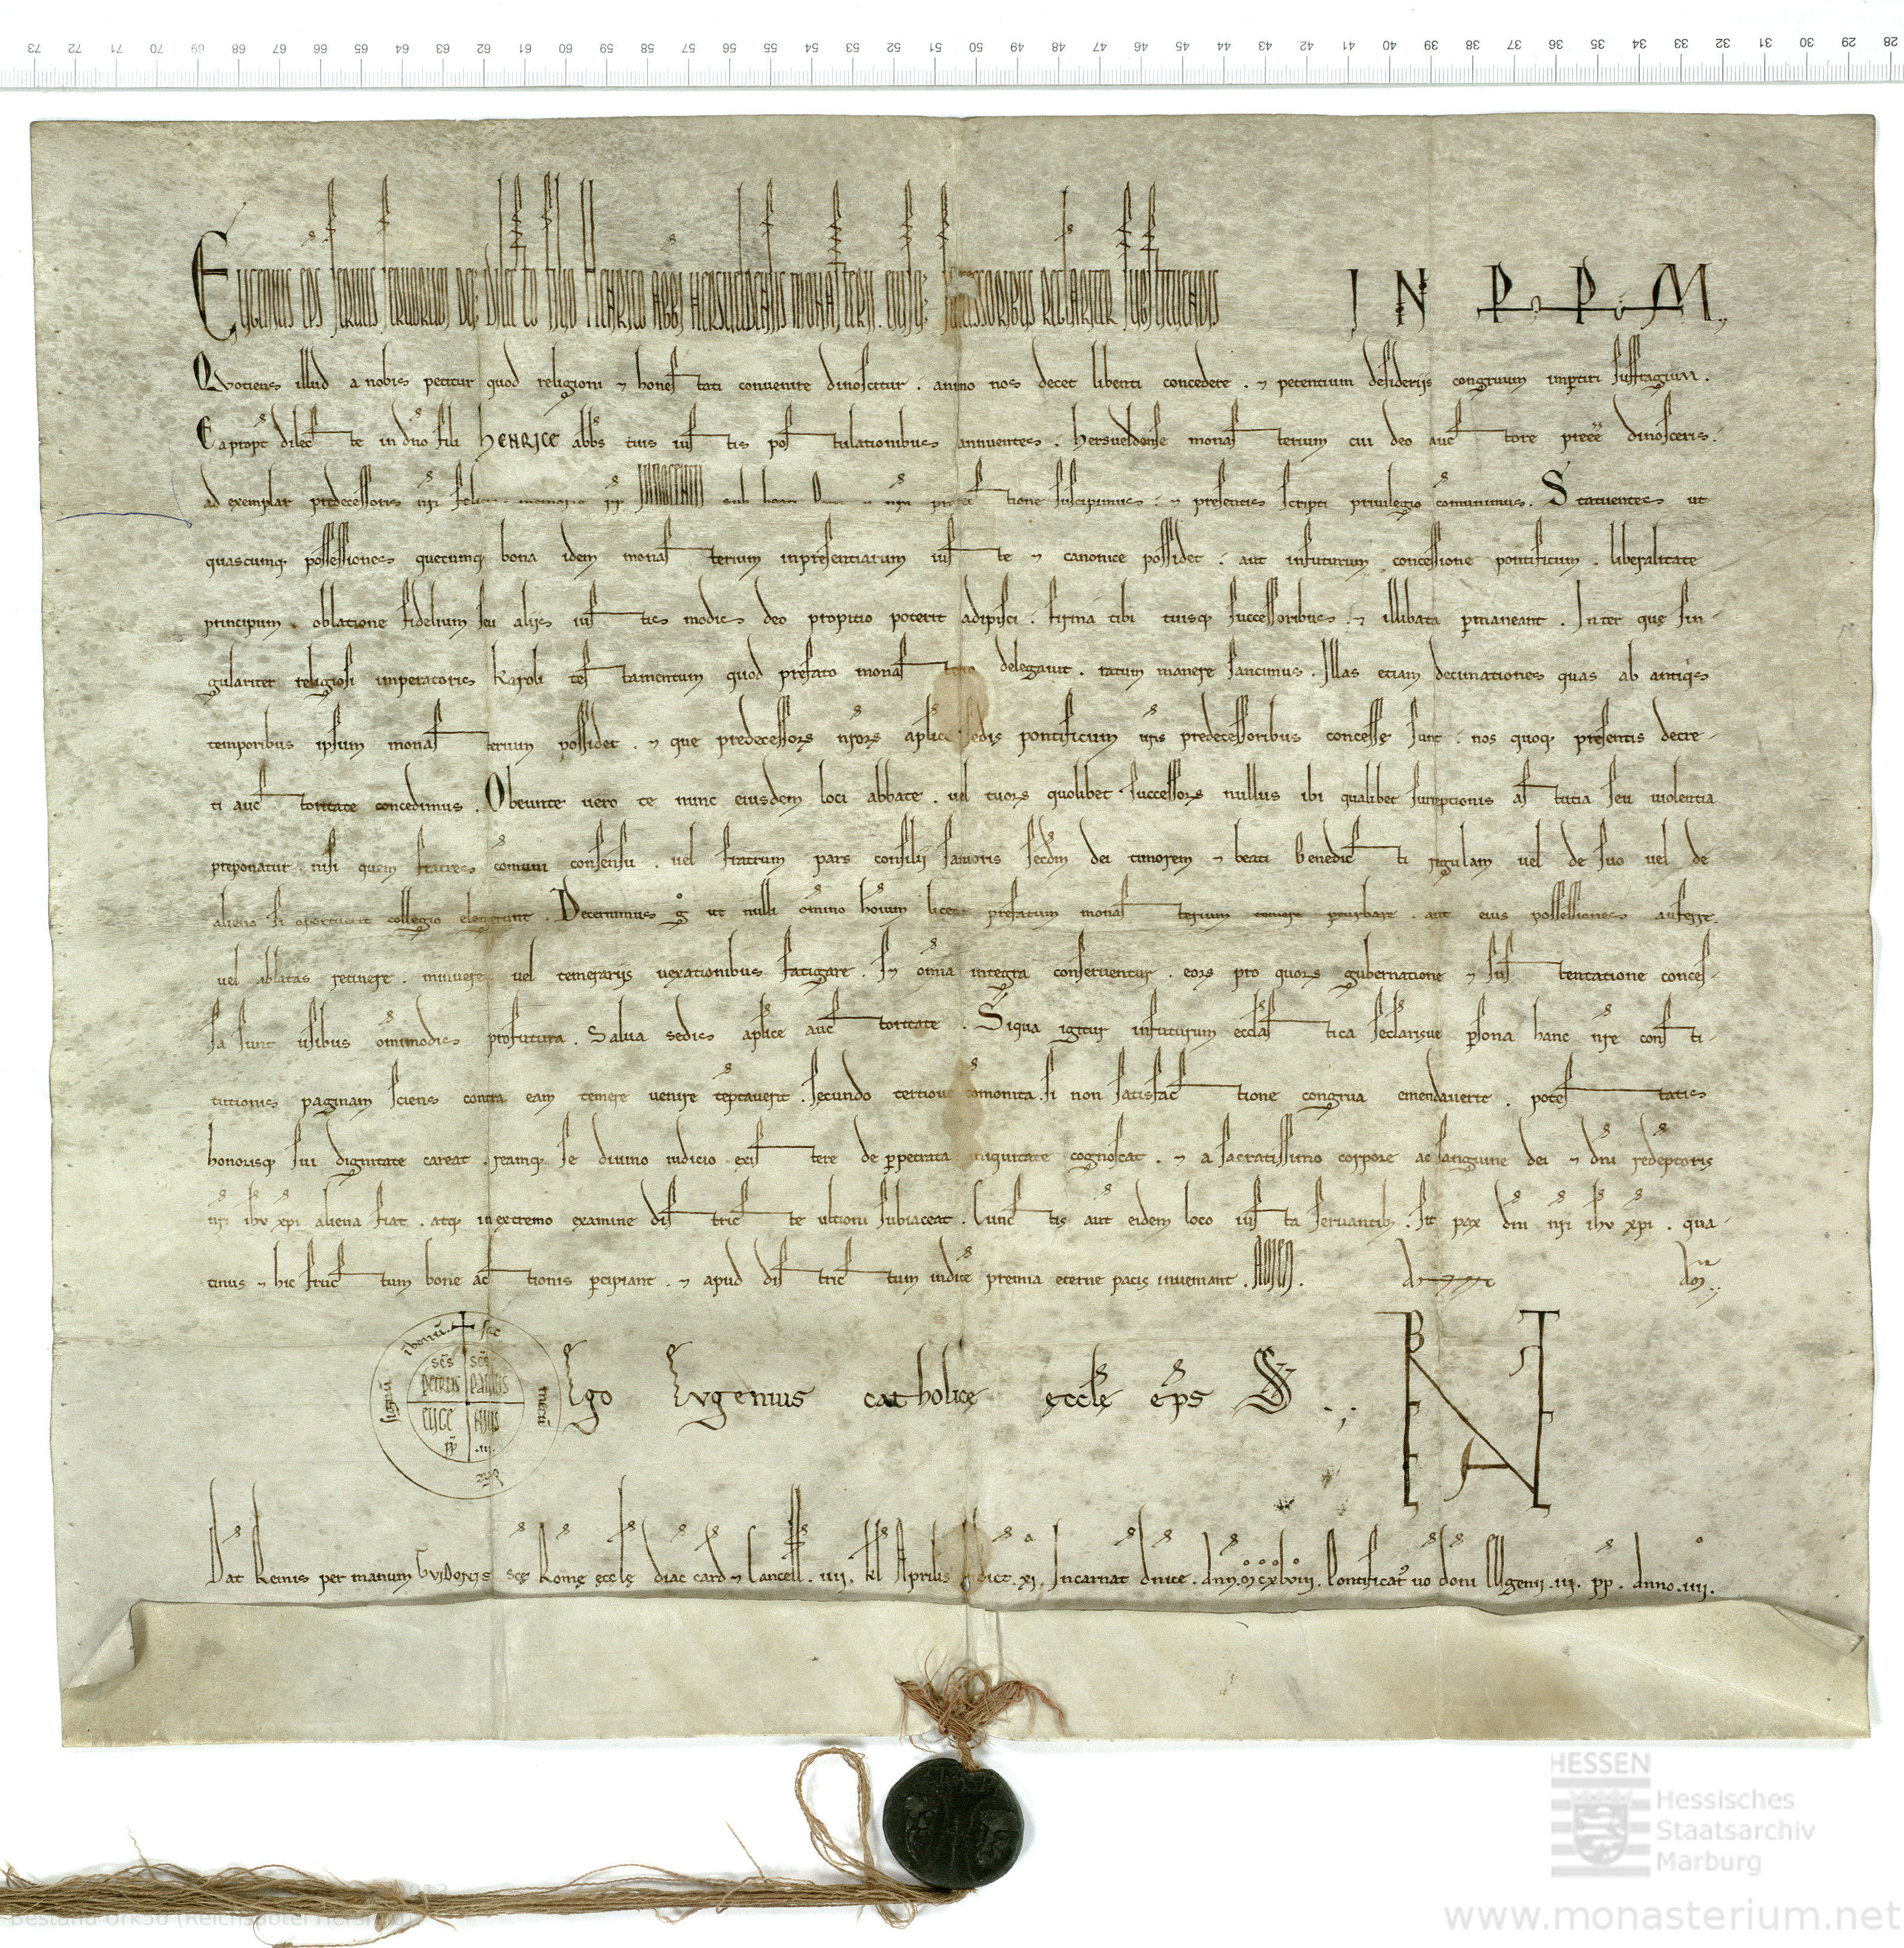 Eugenius eps seruus seruorum dei. Dilecto filio Henrico abbi hersueldensis monasterii. eiusq; successoribus regulariter substituendis IN PPM
Quotiens illud a nobis petitur quod religioni ⁊ honestati conuenire dinoscitur. animo nos decet libenti concedere. ⁊ petentium desiderijs congruum impertiri suffragium.
Eapropt dilecte in dno fili HENRICE abbs tuis iustis postulationibus annuentes. hersueldense monasterium cui deo auctore preee dinosceris.
ad exemplar predecessoris nri felicis memorie pp INNOCENTII sub beati Petri ⁊ nra protectione suscipimus. ⁊ presentis scripti priuilegio comunimus. Statuentes ut
quascumq; possessiones quecumq; bona idem monasterium inpresentiarum iuste ⁊ canonice possidet. aut infuturum concessione pontificum. liberalitate
principum. oblatione fidelium seu alijs iustis modis deo propitio poterit adipisci. firma tibi tuisq; successoribus. ⁊ illibata pmaneant. Inter quę sin-
gulariter religiosi imperatoris Karoli testamentum quod prefato monasterio delegauit. ratum manere sancimus. Illas etiam decimationes quas ab antiqis
temporibus ipsum monasterium possidet. ⁊ que predecessorꝝ nrorꝝ aplice sedis pontificum uris predecessoribus concessę sunt. nos quoq; presentis decre-
ti auctoritate concedimus. Obeunte uero te nunc eiusdem loci abbate. uel tuorꝝ quolibet successorꝝ nullus ibi qualibet surreptionis astutia seu uiolentia
preponatur. nisi quem fratres comuni consensu. uel fratrum pars consilij sanioris secdm dei timorem ⁊ beati Benedicti regulam uel de suo uel de
alieno si oportuerit collegio elegerint. Decernimus g ut nulli omino hoium liceat prefatum monasterium temere pturbare. aut eius possessiones auferre.
uel ablatas retinere. minuere. uel temerarijs uexationibus fatigare. S; omia integra conseruentur. eorꝝ pro quorꝝ gubernatione ⁊ sustentatione conces-
sa sunt usibus omimodis profutura. Salua sedis aplice auctoritate. Siqua igitur infuturum ecclastica seclarisue psona hanc nre consti-
tutionis paginam sciens contra eam temere uenire teptauerit. secundo tertioue comonita. si non satisfactione congrua emendauerit. potestatis
honorisq; sui dignitate careat. reamq; se diuino iudicio existere de ppetrata iniquitate cognoscat. ⁊ a sacratissimo corpore ac sanguine dei ⁊ dni redeptoris
nri ihu xpi aliena fiat. atq; inextremo examine districte ultioni subiaceat. Cunctis aut eidem loco iusta seruantib;. sit pax dni nri ihu xpi. qua-
tinus ⁊ hic fructum bone actionis pcipiant. ⁊ apud districtum iudice premia eterne pacis inueniant. AMEN.
signu ibonu + fac mecu
scs PETRUS scs PAULUS
EUGENIUS pp .III.
Ego Eugenius catholicę ecclę eps
Dat Remis per manum GVIDONIS scę Romę ecclę diac card ⁊ Cancell. IIII. kl Aprilis Indict. XI. Incarnat dnice. anni. M CXLVIII. Pontificat uo domi Eugenii .III. pp. anno. IIII.
28 29 30 31 32 33 34 35 36 37 38 39 40 41 42 43 44 45 46 47 48 49 50 51 52 53 54 55 56 57 58 59 60 61 62 63 64 65 66 67 68 69 70 71 72 73
HESSEN
Hessisches
Staatsarchiv
Marburg
www.monasterium.net